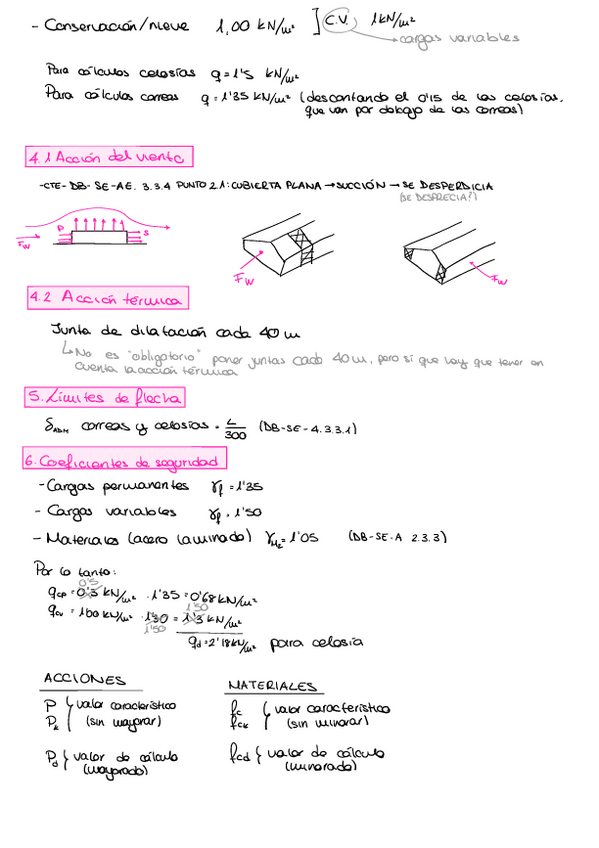 - Conservación/nieve 1,00 kN/m² ] C.V. 1kN/m²
→ cargas variables
Para cálculos celosías q=1'5 kN/m²
Para cálculos correas q=1'35 kN/m² (descontando el 0'15 de las celosías,
que van por debajo de las correas)
4.1 Acción del viento
-CTE-DB-SE-AE. 3.3.4 PUNTO 2.1: CUBIERTA PLANA → SUCCIÓN → SE DESPERDICIA
(SE DESPRECIA?)
P
S
Fw
Fw
Fw
4.2 Acción térmica
Junta de dilatación cada 40 m
↳ No es "obligatorio" poner juntas cada 40m, pero sí que hay que tener en
cuenta la acción térmica
5. Límites de flecha
δADM correas y celosías = L/300 (DB-SE-4.3.3.1)
6. Coeficientes de seguridad
- Cargas permanentes γf = 1'35
- Cargas variables γf = 1'50
- Materiales (acero laminado) = 1'05 (DB-SE-A 2.3.3)
Por lo tanto:
0'5
qcp = 0'3 kN/m² · 1'35 = 0'68 kN/m²
1'50
qcv = 1'00 kN/m² · 1'30 = 1'3 kN/m²
1'50
qd = 2'18 kN/m² para celosía
ACCIONES
P } valor característico
Pk (sin mayorar)
Pd } valor de cálculo
(mayorado)
MATERIALES
fc { valor característico
fck (sin minorar)
fcd { valor de cálculo
(minorado)